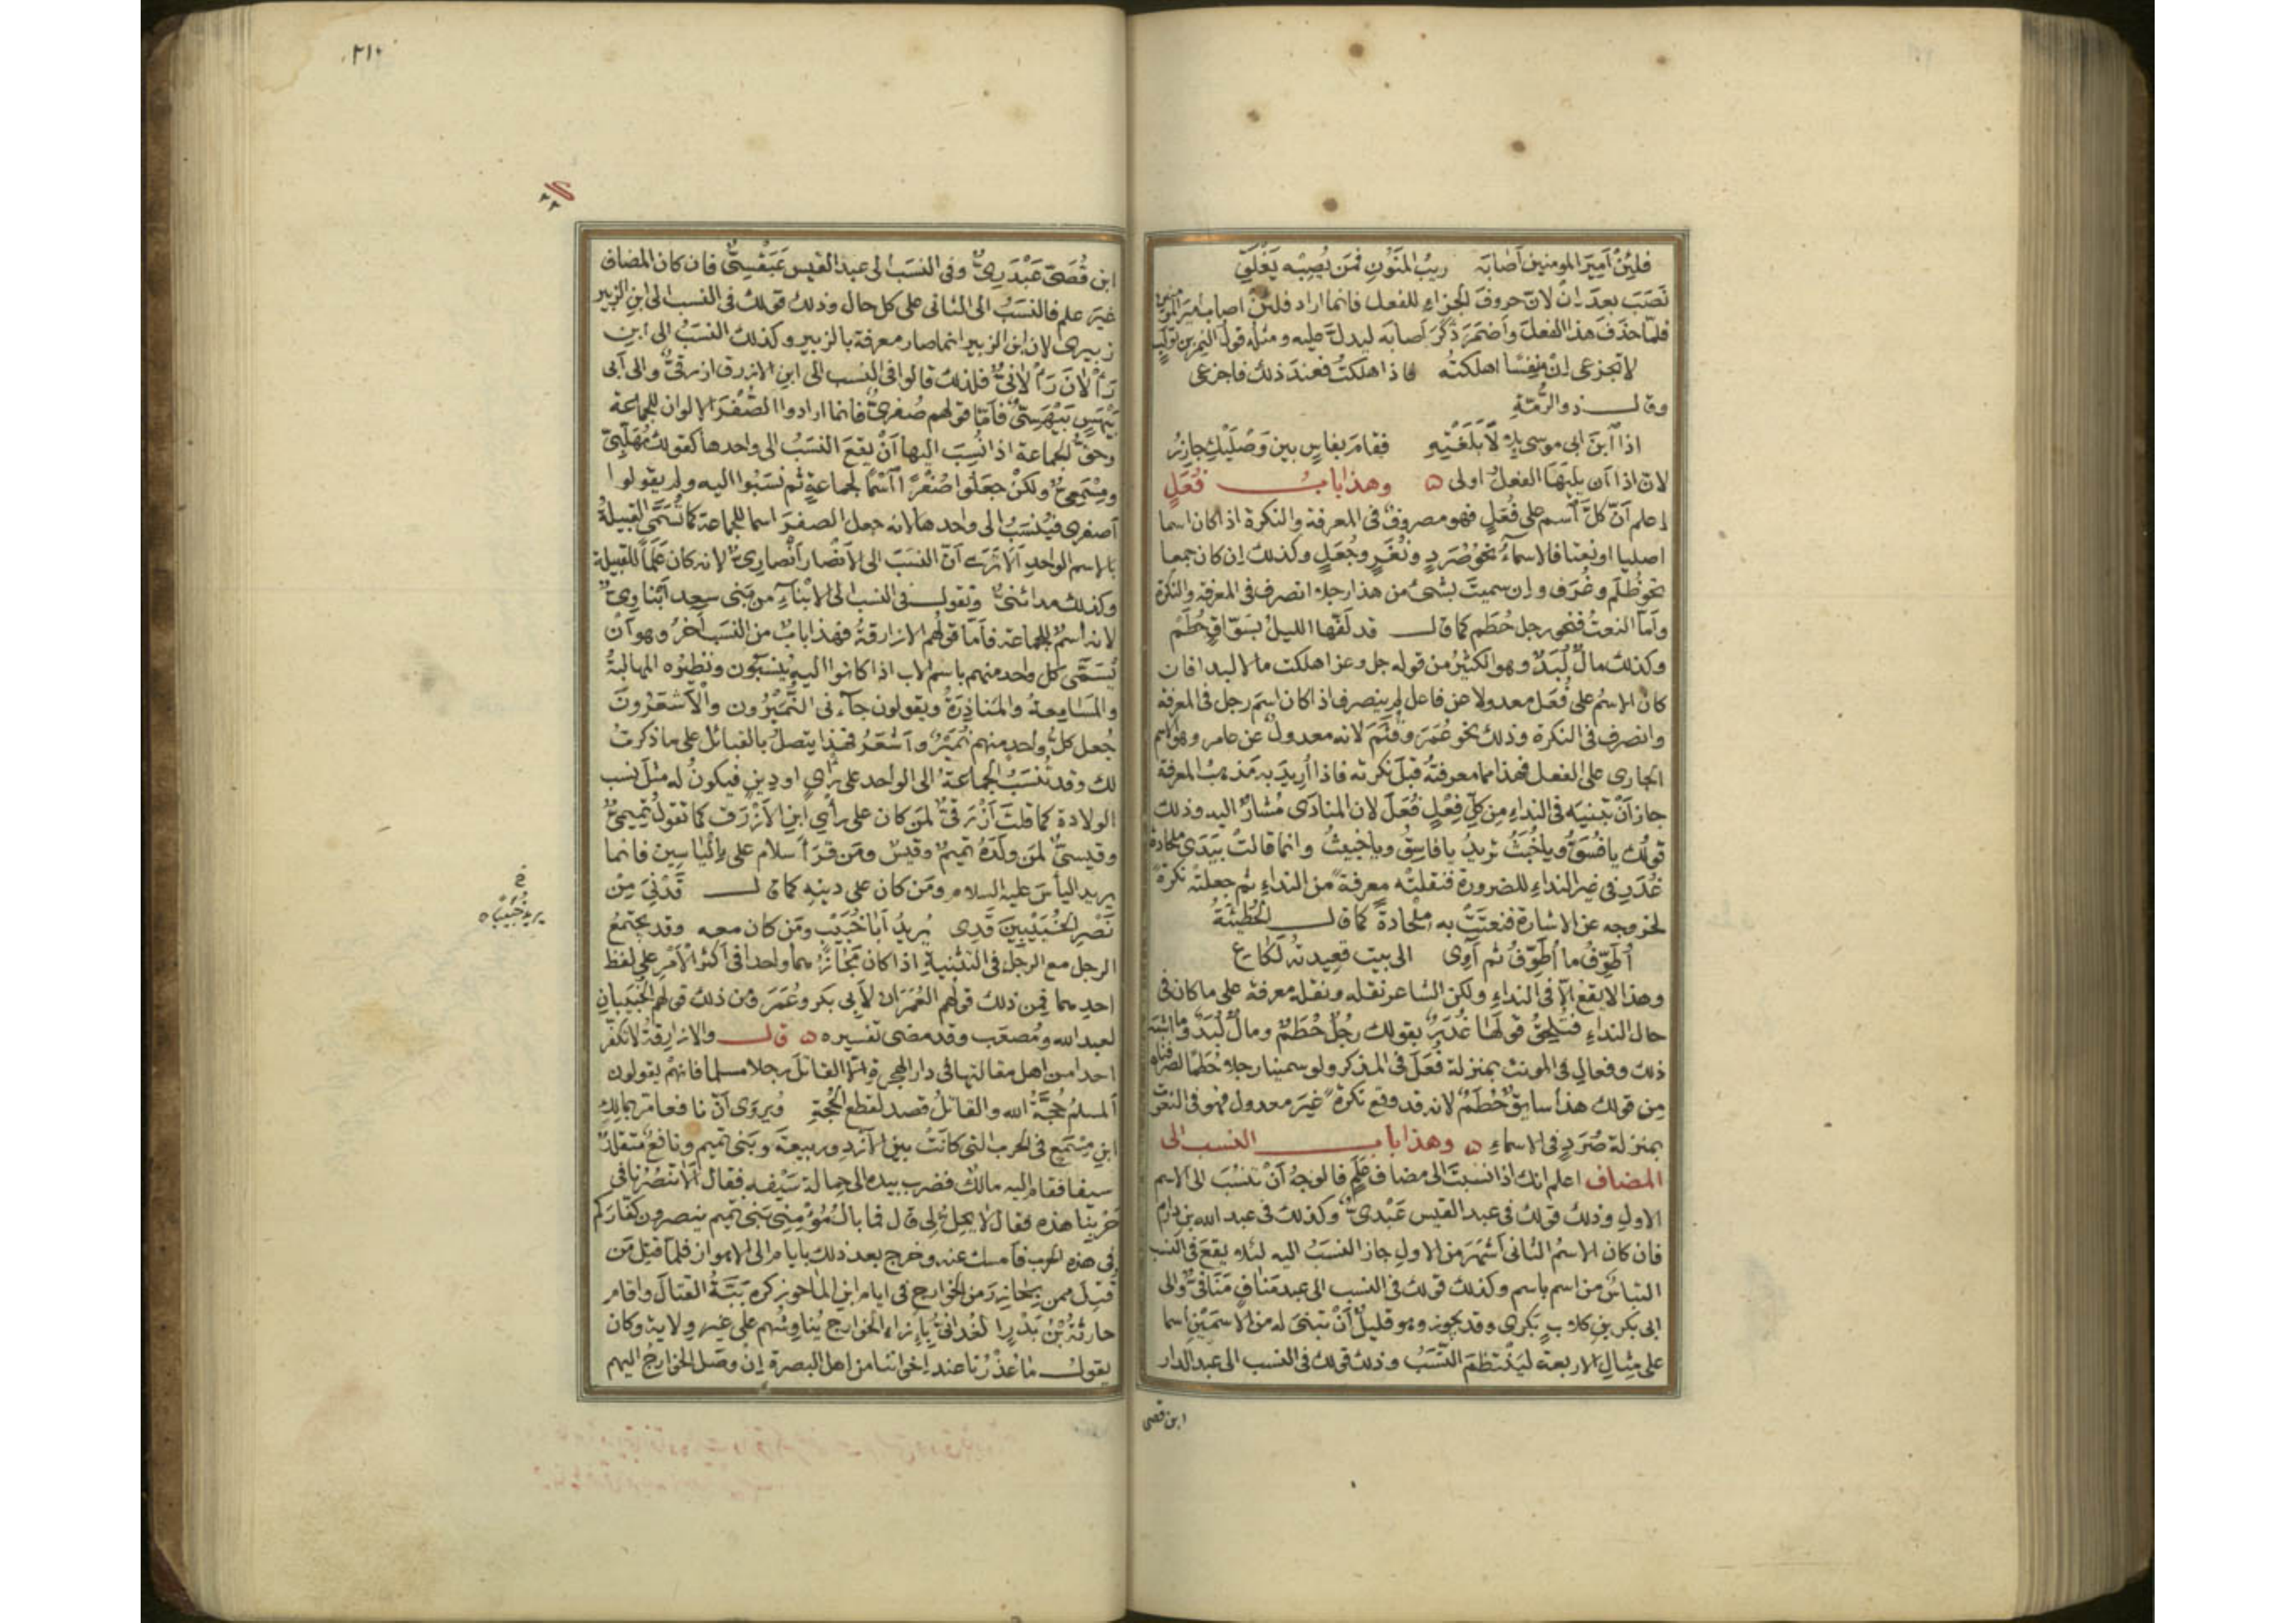 فلئن أمير المومنين أصابه ريب المنون فمن يصبه يغلق
نصب بعد إن لان حروف الجزاء للفعل فانما اراد فلئن اصاب امير المومنين
فلما حذف هذا الفعل وأضمر ذكر اصابه ليدل عليه ومثله قول النمر بن تولب
لا تجزعى إن منفسا اهلكته فاذا هلكت فعند ذلك فاجزعى
وقال ذو الرمة
اذا ابن ابى موسى بلالا بلغتيه فقام بفاس بين وصليك جازر
لان اذا ان يليها الفعل اولى ه وهذا باب فعل
اعلم أن كل اسم على فعل فهو مصروف فى المعرفة والنكرة اذا كان اسما
اصليا او نعتا فالاسماء نحو صرد ونغر وجعل وكذلك إن كان جمعا
نحو ظلم وغرف وإن سميت بشئ من هذا رجلا انصرف فى المعرفة والنكرة
وأما النعت فنحو رجل حطم كما قال قد لفها الليل بسواق حطم
وكذلك مال لبد وهو الكثير من قوله جل وعز اهلكت مالا لبدا فان
كان الاسم على فعل معدولا عن فاعل لم ينصرف اذا كان اسم رجل فى المعرفة
وانصرف فى النكرة وذلك نحو عمر وقثم لانه معدول عن عامر وهو الاسم
الجارى على الفعل فهذا مما معرفته قبل نكرته فاذا أريد به مذهب المعرفة
جاز أن تبنيه فى النداء من كل فعل فعل لان المنادى مشار اليه وذلك
قولك يا فسق ويا خبث تريد يا فاسق ويا خبيث وانما قالت بيدى ملحادة
غدر فى غير النداء للضرورة فنقلته معرفة من النداء ثم جعلته نكرة
لخروجه عن الاشارة فنعتت به ملحادة كما قال الحطيئة
أطوف ما أطوف ثم آوى الى بيت قعيدته لكاع
وهذا لا يقع الا فى النداء ولكن الشاعر نقله ونقله معرفة على ما كان فى
حال النداء فتلحق قولها غدر بقولك رجل حطم ومال لبد وما اشبه
ذلك وفعال فى المونث بمنزلة فعل فى المذكر ولو سمينا رجلا حطما لصرفناه
من قولك هذا سايق حطم لانه قد وقع نكرة غير معدول فهو فى النعوت
بمنزلة صرد فى الاسماء ه وهذا باب النسب الى
المضاف اعلم انك اذا نسبت الى مضاف علم فالوجه أن تنسب الى الاسم
الاول وذلك قولك فى عبد القيس عبدى وكذلك فى عبد الله بن دارم
فان كان الاسم الثانى أشهر من الاول جاز النسب اليه لئلا يقع فى النسب
التباس من اسم باسم وكذلك قولك فى النسب الى عبد مناف منافى والى
ابى بكر بن كلاب بكرى وقد يجوز وهو قليل أن تبنى له من الاسمين اسما
على مثال الاربعة لينتظم النسب وذلك قولك فى النسب الى عبد الدار
ابن قصى
٢١٠
ابن قصى عبدرى وفى النسب الى عبد القيس عبقسى فان كان المضاف
غير علم فالنسب الى الثانى على كل حال وذلك قولك فى النسب الى ابن الزبير
زبيرى لان ابن الزبير انما صار معرفة بالزبير وكذلك النسب الى ابن
رألان رألانى فلذلك قالوا فى النسب الى ابن الازرق ازرقى والى أبى
بيهس بيهسى فأما قولهم صفرى فانما ارادوا الصفر الالوان للجماعة
وحق الجماعة اذا نسب اليها أن يقع النسب الى واحدها كقولك مهلبى
ومسمعى ولكن جعلوا صفرا اسما لجماعة ثم نسبوا اليه ولم يقولوا
أصفرى فينسب الى واحدها لانه جعل الصفر اسما للجماعة كما تسمى القبيلة
بالاسم الواحد ألا ترى أن النسب الى الأنصار أنصارى لانه كان علما للقبيلة
وكذلك مدائنى وتقول فى النسب الى الابناء من بنى سعد أبناوى
لانه اسم للجماعة فأما قولهم الازارقة فهذا باب من النسب آخر وهو أن
يسمى كل واحد منهم باسم الاب اذا كانوا اليه ينسبون ونظيره المهالبة
والمسامعة والمناذرة ويقولون جآءنى النميرون والأشعرون
جعل كل واحد منهم نميرا وأشعر فهذا يتصل بالقبائل على ما ذكرت
لك وقد تنسب الجماعة الى الواحد على رأى او دين فيكون له مثل نسب
الولادة كما قلت أزرقى لمن كان على رأى ابن الأزرق كما تقول تميمى
وقيسى لمن ولده تميم وقيس ومن قرأ سلام على إلياسين فانما
يريد الياس عليه السلام ومن كان على دينه كما قال قدنى من
نصر الخبيبين قدى يريد أبا خبيب ومن كان معه وقد يجتمع
الرجل مع الرجل فى التثنية اذا كان مجازهما واحدا فى أكثر الأمر على لفظ
احدهما فمن ذلك قولهم العمران لأبى بكر وعمر ومن ذلك قولهم الخبيبان
لعبد الله ومصعب وقد مضى تفسيره ه قال والازارقة لا تكفر
احدا من اهل مقالتها فى دار الهجرة إلا القاتل رجلا مسلما فانهم يقولون
المسلم حجة الله والقاتل قصد لقطع الحجة ويروى أن نافعا مر بمالك
ابن مسمع فى الحرب التى كانت بين الأزد وربيعة وبنى تميم ونافع متقلد
سيفا فقام اليه مالك فضرب بيده الى حمالة سيفه فقال ألا تنصرنا فى
حربنا هذه فقال لا يحل لى قال فما بال مؤمنى بنى تميم ينصرون كفاركم
فى هذه الحرب فأمسك عنه وخرج بعد ذلك بأيام الى الاهواز فلما قتل من
قتل ممن بحازر من الخوارج فى ايام ابن الماحوز كره ببة القتال واقام
حارثة بن بدر الغدانى بإزاء الخوارج يناوشهم على غير ولاية وكان
يقول ما عذرنا عند اخواننا من اهل البصرة إن وصل الخوارج اليهم
يريد خبيبا ه